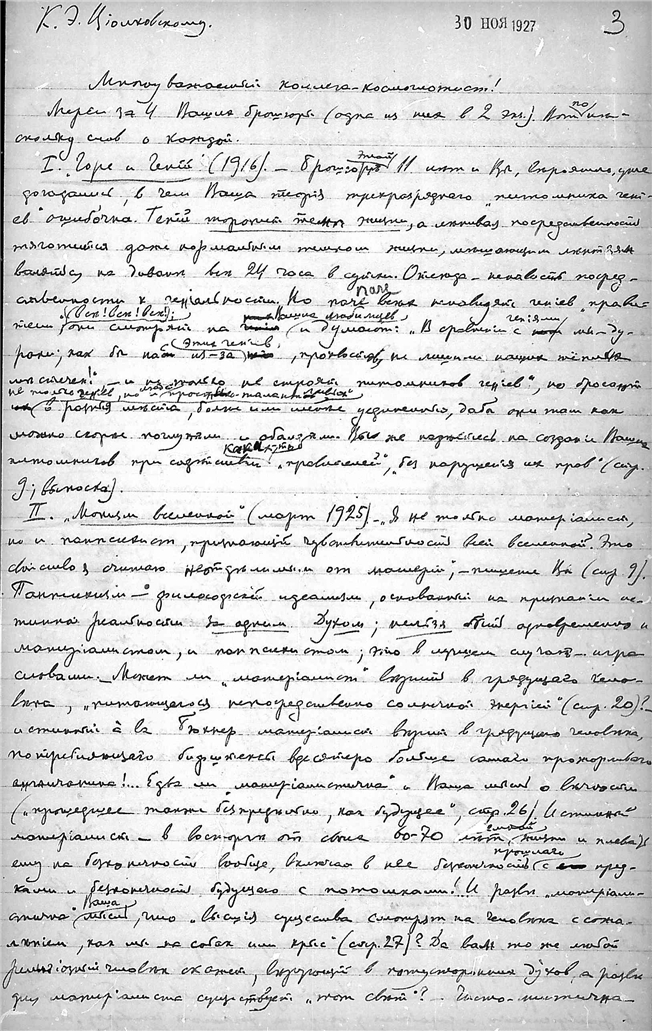 К. Э. Ціолковскому.
30 НОЯ 1927
3
Многоуважаемый коллега-космоглотист!
Мерси за 4 Ваших брошюры (одна из них в 2 экз.). Вот по нѣ-
скольку слов о каждой.
I. „Горе и Геній" (1916). – Брошюрѣ этой 11 лѣт и Вы, вѣроятно, уже
догадались, в чем Ваша теорія трехразряднаго „питомника гені-
ев" ошибочна. Геній торопит темп жизни, а лѣнивая посредственность
тяготится даже нормальным темпом жизни, мѣшающим лѣнтяям
валяться на диванѣ всѣ 24 часа в сутки. Отсюда – ненависть посред-
ственности к геніальности. Но паче всѣх ненавидят геніев „прави-
тели" (Всѣ! Всѣ! Всѣ!); они смотрят на Ваших любимцев и думают: „В сравненіи с геніями мы – ду-
раки; как бы из-за этих геніев, прохвостов, не лишили нас тепленьких
мѣстечек!" – и не только не строят питомников геніев", но бросают
не только геніев, но и просто „талантливых"
в разныя мѣста, болѣе или менѣе уединенныя, дабы они там как
можно скорѣе погибли. Вы же надѣетесь на созданіе Ваших
питомников при содѣйствіи каких-то „правителей", „без нарушенія их прав" (стр.
9; выноска).
II. „Монизм вселенной" (март 1925) – „Я не только матеріалист,
но и панпсихист, признающій чувствительность всей вселенной. Это
свойство я считаю неотдѣлимым от матеріи", – пишете Вы (стр. 9).
Панпсихизм – философскій идеализм, основанный на признаніи ис-
тинной реальности за одним Духом; нельзя быть одновременно и
матеріалистом, и панпсихистом; это в лучшем случаѣ – игра
словами. – Может ли „матеріалист" вѣрить в грядущаго чело-
вѣка, „питающагося непосредственно солнечной энергіей" (стр. 20)? –
истинный à la Бюхнер матеріалист вѣрит в грядущаго человѣка,
потребляющаго бифштексы вдесятеро больше самаго прожорливаго
англичанина!... Едва ли „матеріалистична" и Ваша мысль о вѣчности
(„прошедшее также безпредѣльно, как будущее", стр. 26). Истинный
матеріалист – в восторгѣ от своих 60-70 лѣт земной жизни и плевать
ему на безконечность вообще, включая в нее безконечность прошлаго с пред-
ками и безконечность будущаго с потомками!... И развѣ „матеріали-
стична" Ваша мысль, что „высшія существа смотрят на человѣка с сожа-
лѣніем, как мы на собак или крыс" (стр. 27)? Да вам то же любой
религіозный человѣк скажет, вѣрующій в потусторонних духов, а развѣ
для матеріалиста существует „тот свѣт"? – Чисто-мистична –